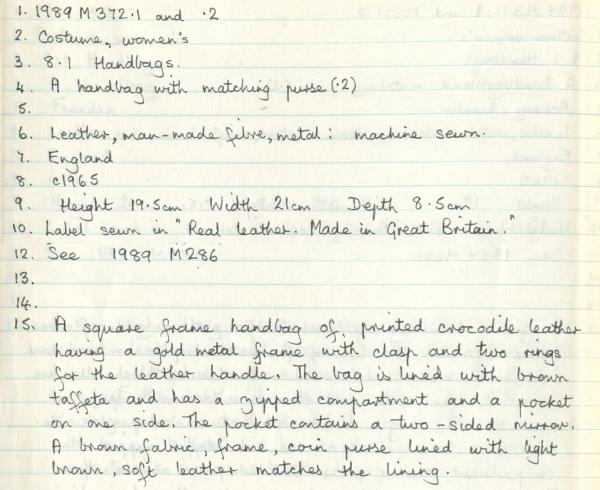 1. 1989 M 372.1 and .2
2. Costume, women's
3. 8.1 Handbags.
4. A handbag with matching purse (.2)
5.
6. Leather, man-made fibre, metal: machine sewn.
7. England
8. c1965
9. Height 19.5cm Width 21cm Depth 8.5cm
10. Label sewn in "Real leather. Made in Great Britain."
12. See 1989 M286
13.
14.
15. A square frame handbag of printed crocodile leather
having a gold metal frame with clasp and two rings
for the leather handle. The bag is lined with brown
taffeta and has a zipped compartment and a pocket
on one side. The pocket contains a two-sided mirror.
A brown fabric, frame, coin purse lined with light
brown, soft leather matches the lining.